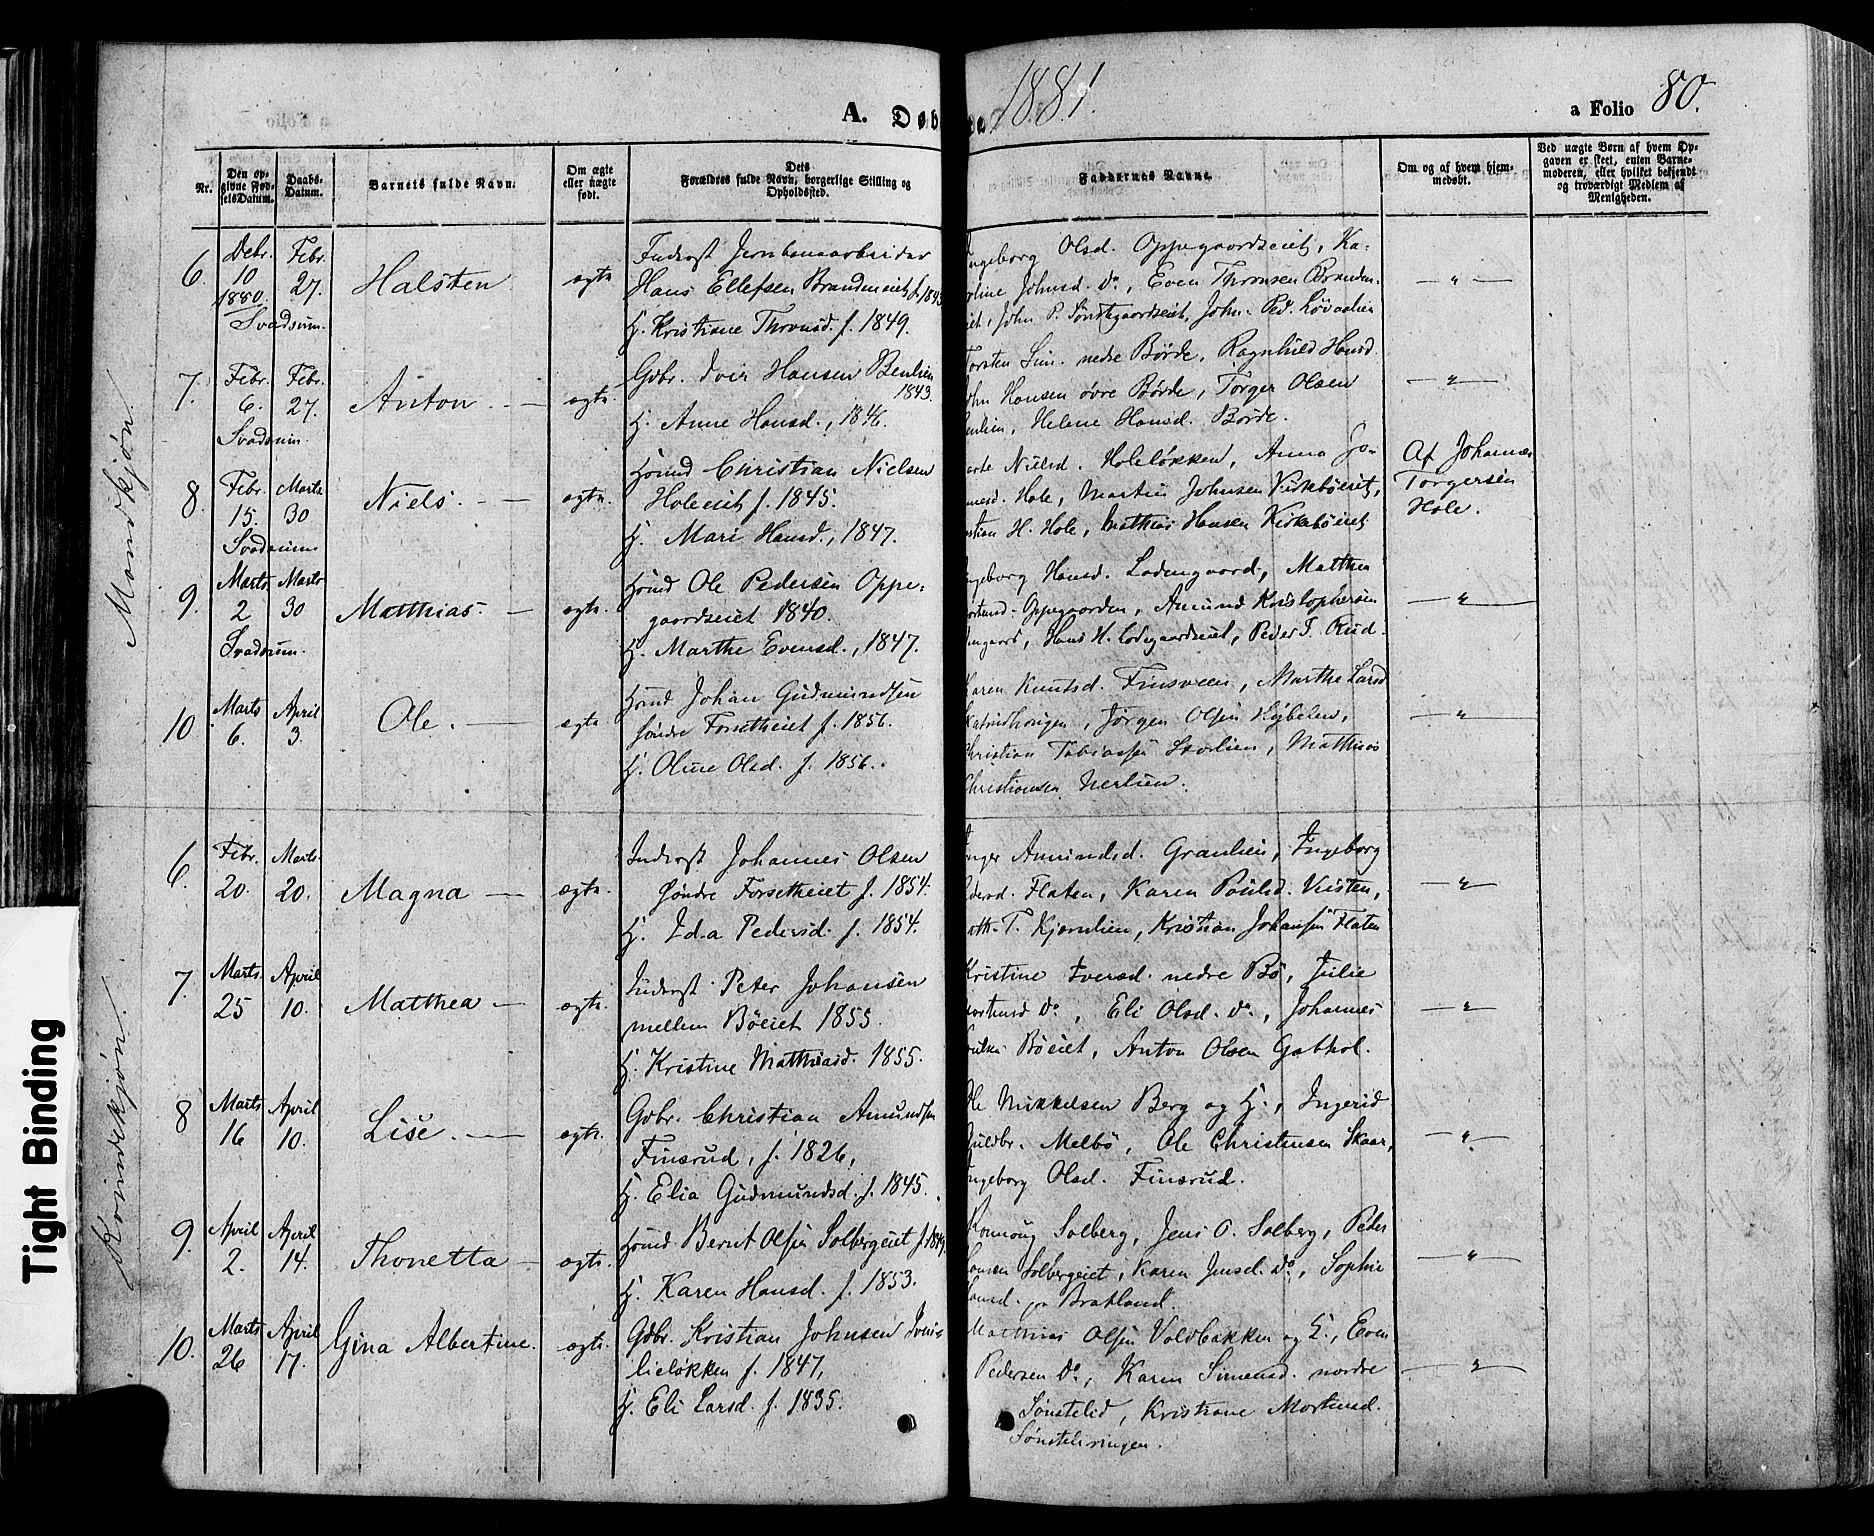 Tight Binding
A. Døb
1881.
a Folio 80.
Nr.
Den op-
givne Fød-
selsDatum.
Daabs-
Datum.
Barnets fulde Navn.
Om ægte
eller uægte
født.
Dets
Forældres fulde Navn, borgerlige Stilling og
Opholdssted.
Faddernes Navne.
Om og af hvem hjem-
medøbt.
Ved uægte Børn af hvem Op-
gaven er skeet, enten Barne-
moderen, eller hvilket bekjendt
og troværdigt Medlem af
Menigheden.
Mandkjøn.
6.
Debr.
10
1880.
Svadsum.
Febr.
27.
Halsten
ægte
Inderst Jernbanearbeider
Hans Ellefsen Brandeneiet f. 1843
H. Kristiane Thronsd. f. 1849.
Ingeborg Olsd. Oppegaardseiet, Ka-
roline Johnsd. do, Even Thronsen Branden-
eiet, John P. Sønstegaardseiet, John Ped. Løvaalien
— " —
7.
Febr.
6.
Svadsum.
Febr.
27.
Anton.
ægte
Gbr. Iver Hansen Benlien
1843.
H. Anne Hansd., 1846.
Torsten Sim. nedre Børde, Ragnhild Hansd.
John Hansen øvre Børde, Torger Olsen
Benlien, Helene Hansd. Børde.
— " —
8.
Febr.
15.
Svadsum.
Marts
30
Niels.
ægte
Hsmd Christian Nielsen
Holeeiet f. 1845.
H. Mari Hansd., 1847.
Marte Nielsd. Holeløkken, Anna Jo-
Hole, Martin Johnsen Kirkebøeiet,
H. Hole, Matthias Hansen Kirkebøeiet
Af Johannes
Torgersen
Hole.
9.
Marts
2
Svadsum.
Marts
30
Matthias.
ægte.
Hsmd Ole Pedersen Oppe-
gaardseiet 1840.
H. Marthe Evensd., 1847.
Ingeborg Hansd. Ladengaard, Matthea
Oppegaarden, Amund Kristophersen
Hans H. Ladegaardseiet, Peder T. Rud
— " —
10
Marts
6.
April
3.
Ole.
ægte
Hsmd Johan Gudmundsen
søndre Forsetheiet f. 1856.
H. Oline Olsd. f. 1856.
Karen Knutsd. Finsveen, Marthe Larsd
Jørgen Olsen Høbelen,
Christian Tobiassen Matthias
Christiansen Nerlien.
— " —
Kvindekjøn.
6.
Febr.
20.
Marts
20.
Magna
ægte
Inderst Johannes Olsen
søndre Forsetheiet f. 1854.
H. Ida Pedersd. f. 1854.
Inger Amundsd. Granlien, Ingeborg
Pedersd. Flaten, Karen Poulsd. Vesten,
Math. T. Kjernlien, Kristian Johansen Flaten
— " —
7.
Marts
25
April
10.
Matthea
ægte.
Inderst Peter Johansen
mellem Bøeiet 1855.
H. Kristine Matthiasd. 1855.
Kristine Iversd. nedre Bø, Julie
do, Eli Olsd. do, Johannes
Bøeiet, Anton Olsen Gathol.
— " —
8
Marts
16
April
10.
Lise.
ægte.
Gbr. Christian Amundsen
Finsrud, f. 1826,
H. Elia Gudmundsd. f. 1845.
Ole Mikkelsen Berg og H., Ingerid
Guldbr. Melbø, Ole Christensen Skaar,
Ingeborg Olsd. Finsrud.
— " —
9.
April
2.
April
14.
Thonetta
ægte.
Hsmd Bernt Olsen Solbergeiet f. 1849
H. Karen Hansd. f. 1853.
Ronnoug Solberg, Jens O. Solberg, Peder
Hansen Solbergeiet, Karen Jensd. do, Sophie
Hansd. fra Bratland.
— " —
10.
Marts
26
April
17.
Gina Albertine.
ægte.
Gbr. Kristian Johnsen
lieløkken f. 1847,
H. Eli Larsd. f. 1835.
Matthias Olsen Voldbakken og H., Even
Pedersen do, Karen Simensd. nordre
Sønstelid, Kristiane Mortensd.
Sønsteliringen.
— " —